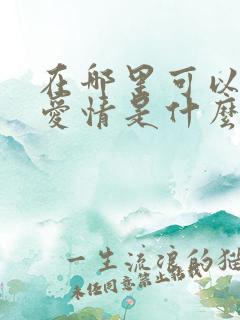 在哪里可以
爱情是什麽
一生流浪的猫
未经同意禁止转载